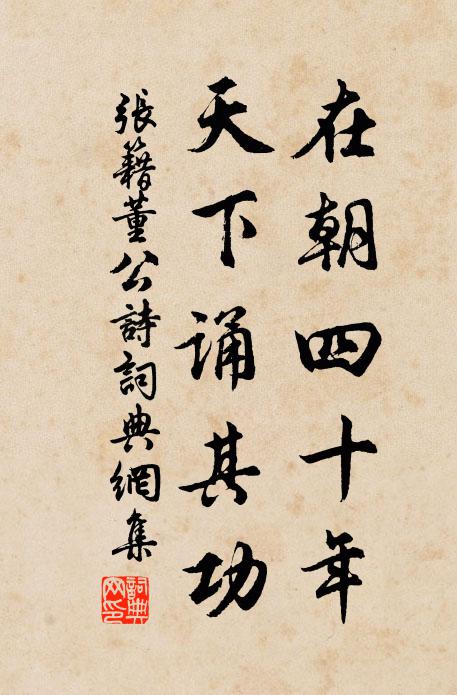 在朝四十年
天下诵其功
張籍董公詩詞典網集
詞典網印